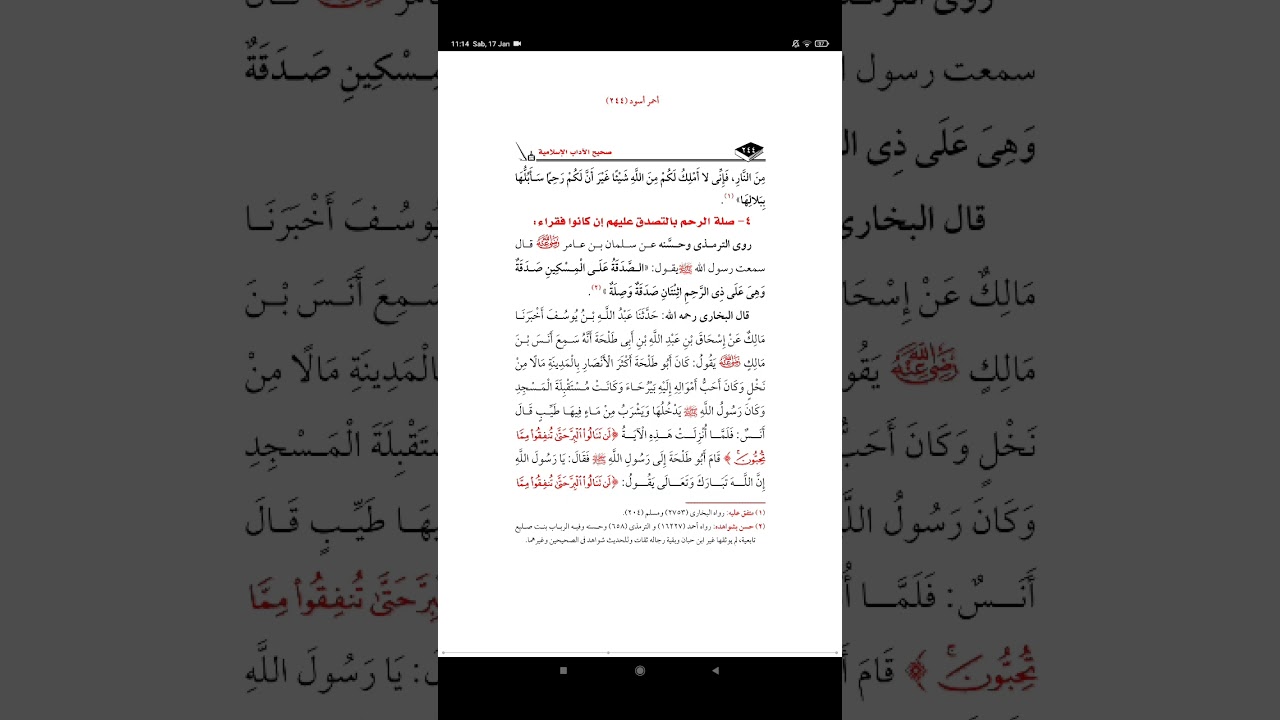 11:14 Sab, 17 Jan
97
أحمر أسود (٢٤٤)
٢٤٤
صحيح الآداب الإسلامية
مِنَ النَّارِ، فَإِنِّى لا أَمْلِكُ لَكُمْ مِنَ اللَّهِ شَيْئًا غَيْرَ أَنَّ لَكُمْ رَحِمًا سَأَبُلُّهَا
بِبَلالِهَا» (١).
٤- صلة الرحم بالتصدق عليهم إن كانوا فقراء:
روى الترمذى وحسَّنه عن سلمان بن عامر رضي الله عنه قال
سمعت رسول الله ﷺ يقول: «الصَّدَقَةُ عَلَى الْمِسْكِينِ صَدَقَةٌ
وَهِىَ عَلَى ذِى الرَّحِمِ اثِنْتَانِ صَدَقَةٌ وَصِلَةٌ» (٢).
قال البخارى رحمه الله: حَدَّثَنَا عَبْدُ اللَّهِ بْنُ يُوسُفَ أَخْبَرَنَا
مَالِكٌ عَنْ إِسْحَاقَ بْنِ عَبْدِ اللَّهِ بْنِ أَبِى طَلْحَةَ أَنَّهُ سَمِعَ أَنَسَ بْنَ
مَالِكٍ رضي الله عنه يَقُولُ: كَانَ أَبُو طَلْحَةَ أَكْثَرَ الْأَنْصَارِ بِالْمَدِينَةِ مَالًا مِنْ
نَخْلٍ وَكَانَ أَحَبُّ أَمْوَالِهِ إِلَيْهِ بَيْرُحَاءَ وَكَانَتْ مُسْتَقْبِلَةَ الْمَسْجِدِ
وَكَانَ رَسُولُ اللَّهِ ﷺ يَدْخُلُهَا وَيَشْرَبُ مِنْ مَاءٍ فِيهَا طَيِّبٍ قَالَ
أَنَسٌ: فَلَمَّا أُنْزِلَتْ هَذِهِ الْآيَةُ ﴿لَن تَنَالُوا۟ ٱلْبِرَّ حَتَّىٰ تُنفِقُوا۟ مِمَّا
تُحِبُّونَ ۚ﴾ قَامَ أَبُو طَلْحَةَ إِلَى رَسُولِ اللَّهِ ﷺ فَقَالَ: يَا رَسُولَ اللَّهِ
إِنَّ اللَّهَ تَبَارَكَ وَتَعَالَى يَقُولُ: ﴿لَن تَنَالُوا۟ ٱلْبِرَّ حَتَّىٰ تُنفِقُوا۟ مِمَّا
(١) متفق عليه: رواه البخارى (٢٧٥٣) ومسلم (٢٠٤).
(٢) حسن بشواهده: رواه أحمد (١٦٢٢٧) و الترمذى (٦٥٨) وحسنه وفيه الرباب بنت صليع
تابعية، لم يوثقها غير ابن حبان وبقية رجاله ثقات وللحديث شواهد فى الصحيحين وغيرهما.